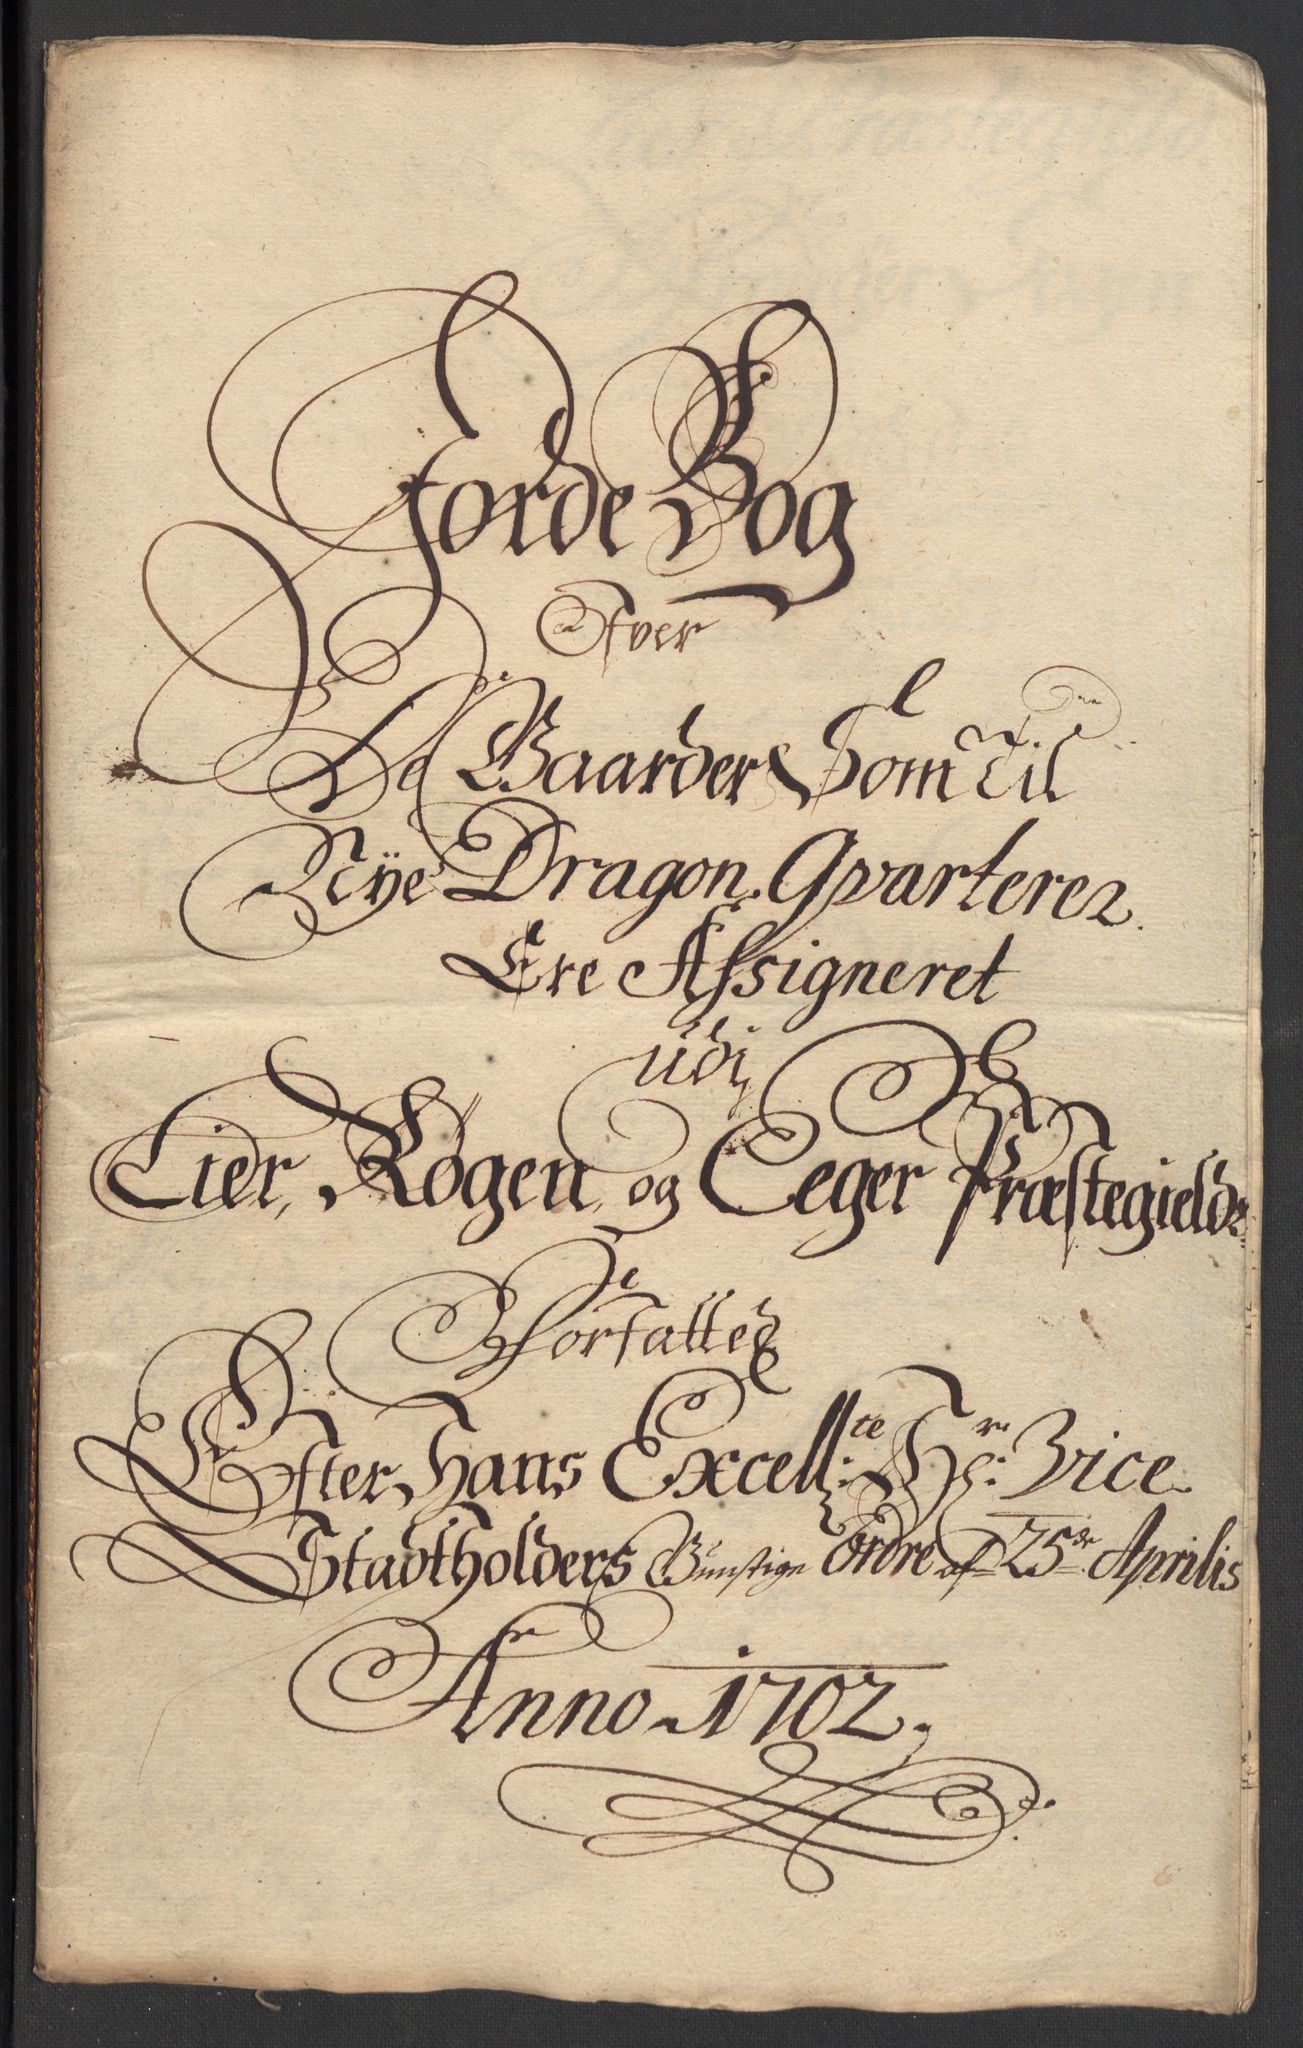 Jorde Bog
Ofver
De Gaarder Som Til
Nÿe Dragon Qvarterer
Ere Assigneret
udj
Lier, Røgen, og Eeger Præstegield
Forfatted
Efter Hans Excell:te Hr: Vice
Stadtholders Gunstige Ordre af 25de Aprilis
Anno 1702.